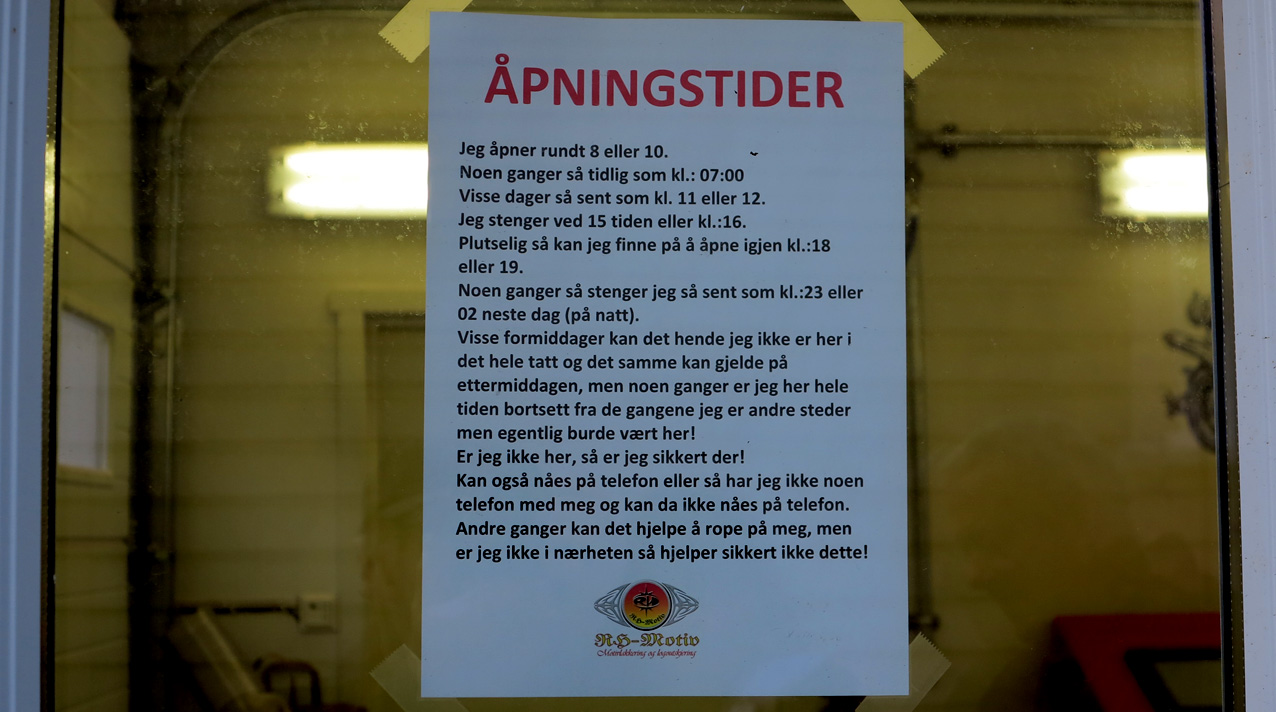 ÅPNINGSTIDER
Jeg åpner rundt 8 eller 10.
Noen ganger så tidlig som kl.: 07:00
Visse dager så sent som kl. 11 eller 12.
Jeg stenger ved 15 tiden eller kl.:16.
Plutselig så kan jeg finne på å åpne igjen kl.:18
eller 19.
Noen ganger så stenger jeg så sent som kl.:23 eller
02 neste dag (på natt).
Visse formiddager kan det hende jeg ikke er her i
det hele tatt og det samme kan gjelde på
ettermiddagen, men noen ganger er jeg her hele
tiden bortsett fra de gangene jeg er andre steder
men egentlig burde vært her!
Er jeg ikke her, så er jeg sikkert der!
Kan også nåes på telefon eller så har jeg ikke noen
telefon med meg og kan da ikke nåes på telefon.
Andre ganger kan det hjelpe å rope på meg, men
er jeg ikke i nærheten så hjelper sikkert ikke dette!
RH-Motiv
RH-Motiv
Motivlakkering og logoutskjæring